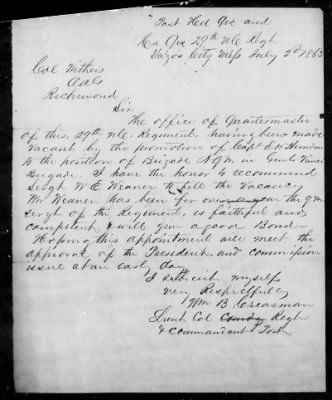 Post Hed Qrs and
Hd Qrs 29th N C Regt
Yazoo City Miss July 2d 1863
Col Withers
A A G
Richmond
Sir
The office of Quartermaster
of this 29th N.C. Regiment, having been made
vacant by the promotion of Capt E H
to the position of Brigade Q M in Genl Vances
Brigade. I have the honor to recommend
Sergt W E Weaver to fill the vacancy
Mr Weaver has been for one year the q m
sergt of the Regiment, is faithful and
competent & will give a good Bond
Hoping this appointment will meet the
approval of the President and commission
issue at an early day
I subscribe myself
very Respectfully
Wm B
Lieut Col Comdg Regt
& Commandant Post